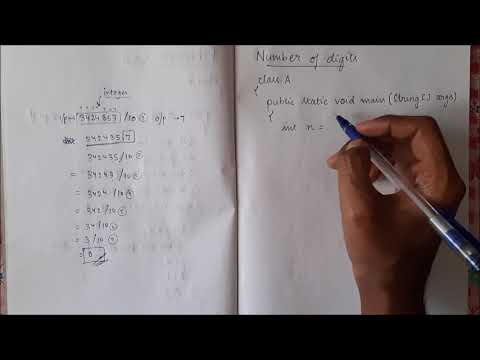 integer
i/p → 3424357 /10 ① o/p → 7
342435 7
342435/10 ②
= 34243/10 ③
= 3424/10 ④
= 342/10 ⑤
= 34/10 ⑥
= 3/10 ⑦
= 0
Number of digits
class A
{
public static void main (String [] args)
{
int n =